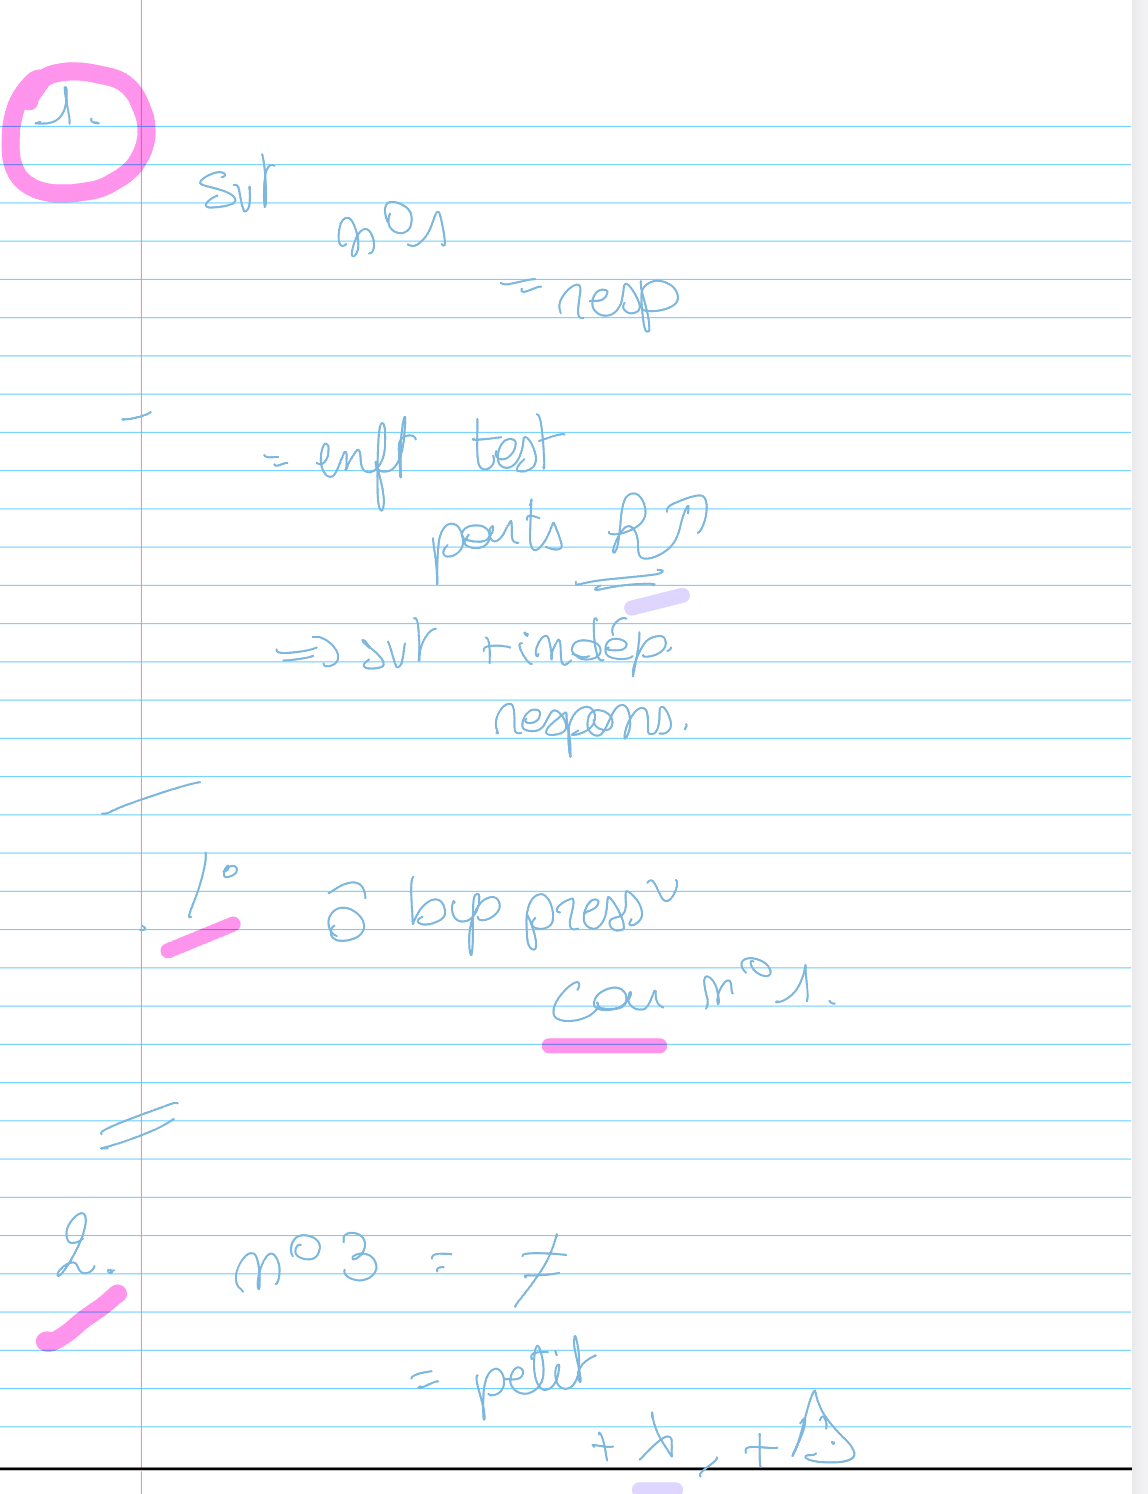 1.
svt
n°1
= resp
- = enft test
parts R↑
=> svt + indép.
respons.
1° ô byp press
car n°1.
2. n°3 = ≠
= petit
+ λ, +